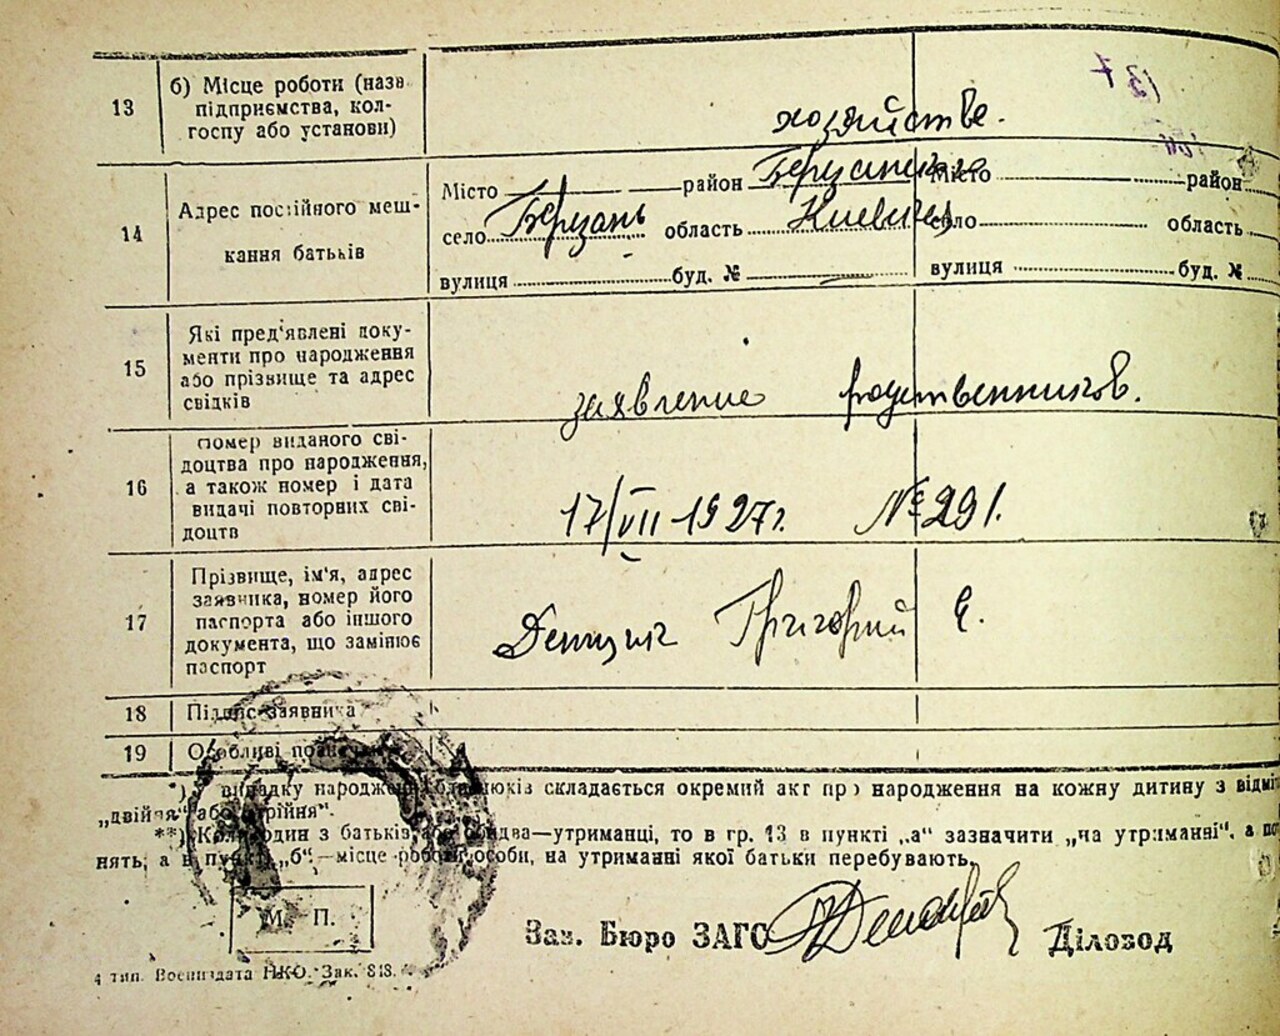 13
б) Місце роботи (назв
підприємства, кол-
госпу або установи)
хозяйстве.
14
Адрес постійного меш-
кання батьків
Місто район Березанского
село Березань область Киевская
вулиця буд. №
Місто район
село область
вулиця буд. №
15
Які пред'явлені доку-
менти про народження
або прізвище та адрес
свідків
заявление родственников.
16
номер виданого сві-
доцтва про народження,
а також номер і дата
видачі повторних сві-
доцтв
17/VII-1927г. № 291.
17
Прізвище, ім'я, адрес
заявника, номер його
паспорта або іншого
документа, що замінює
паспорт
Григорий Е.
18
Підпис заявника
19
Особливі
*) випадку народжен складається окремий акт про народження на кожну дитину з відмі
„двійня“ або „трійня“.
**) Коли один з батьків або обидва—утриманці, то в гр. 13 в пункті „а“ зазначити „на утриманні“, а по
нять, а в пункті „б“—місце роботи особи, на утриманні якої батьки перебувають.
М. П.
Зав. Бюро ЗАГС Діловод
4 тип. Воениздата НКО. Зак. 818.